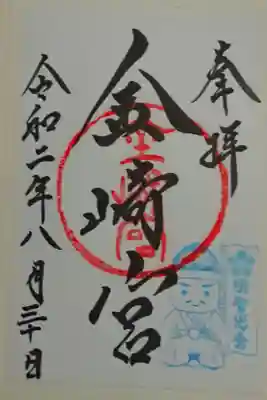 奉拝
金崎宮
令和二年八月三十日